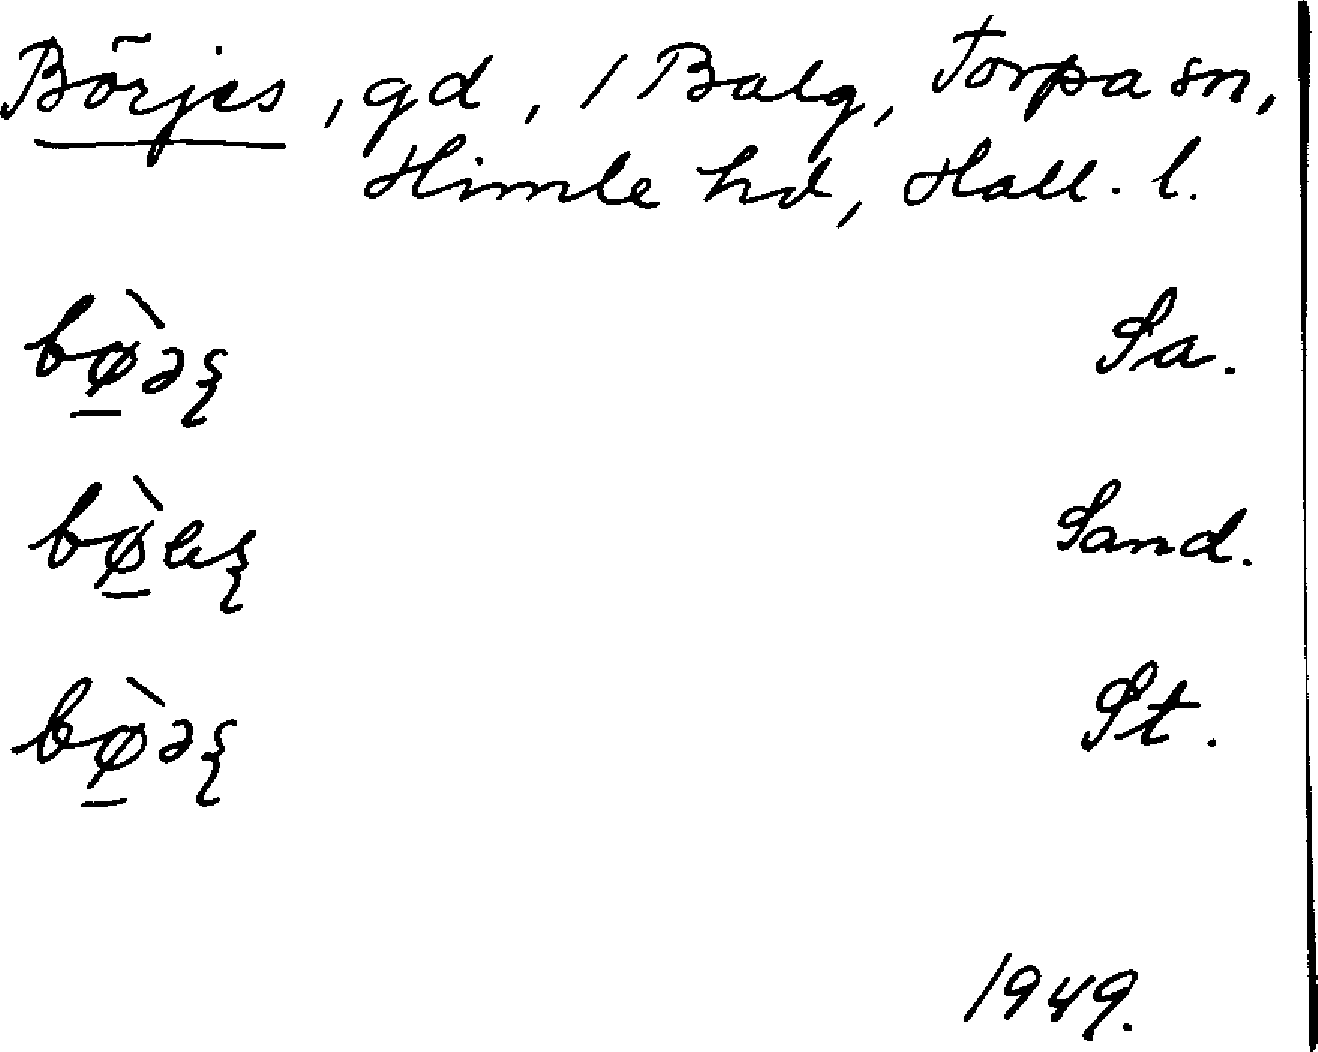 Börjes, gd, i Balg, Torpa sn,
Himle hd, Hall. l.
bø̱̀əς Sa.
bø̱̀eς Sand.
bø̱̀əς St.
1949.